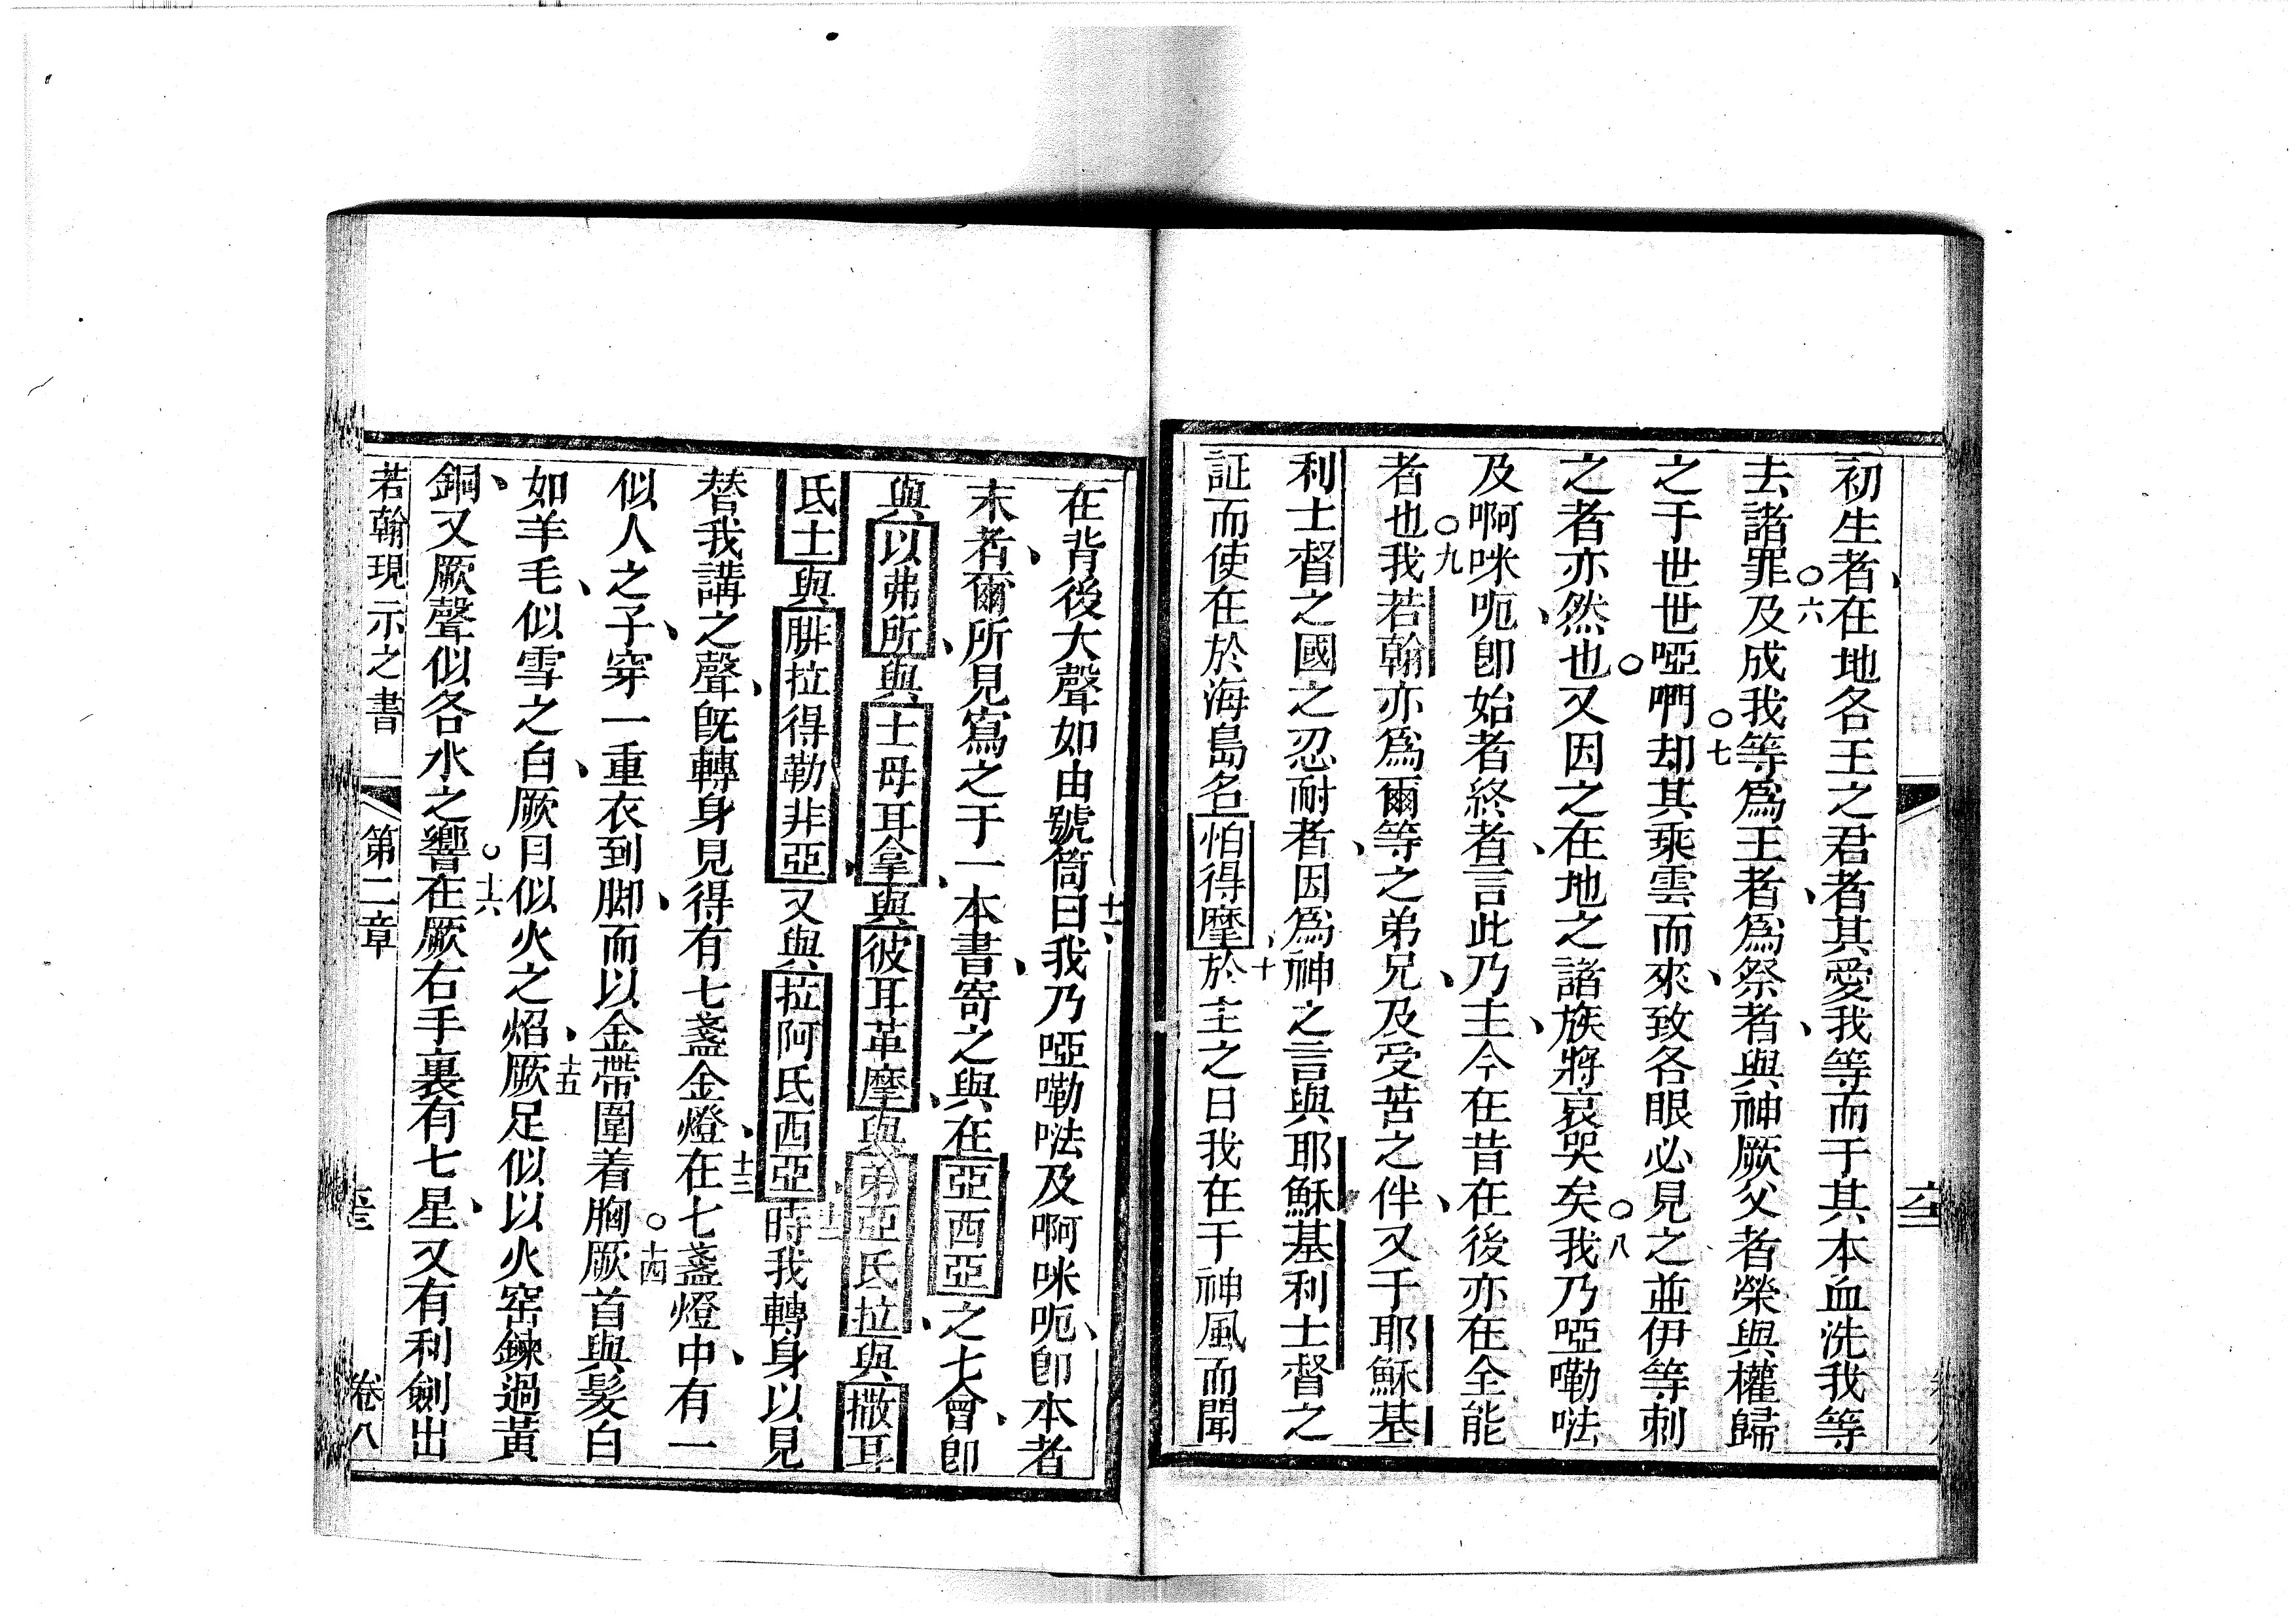 初生者、在地各王之君者、其愛我等而于其本血洗我等
去諸罪○六及成我等爲王者、爲祭者、與神厥父者榮與權歸
之于世世啞啊○七却其乘雲而來、致各眼必見之並伊等刺
之者亦然也○又因之在地之諸族將哀哭矣○八我乃啞嘞哒
及啊咪呃、卽始者終者、言此乃主、今在昔在後亦在全能
者也○九我若翰亦爲爾等之弟兄、及受苦之伴、又于耶穌基
利士督之國之忍耐者、因爲神之言與耶穌基利士督之
証而使在於海島名怕得摩、十於主之日我在于神風而聞
在背後大聲如由號筒十一曰、我乃啞嘞哒及啊咪呃、卽本者
末者、爾所見寫之于一本書、寄之與在亞西亞之七會、卽
與以弗所、與士母耳拿、與彼耳革摩、與弟亞氏拉、與撒耳
氏士與腓拉得勒非亞、又與拉阿氏西亞、時我轉身以見
替我講之聲、旣轉身見得有七盞金燈、十三在七盞燈中、有一
似人之子、穿一重衣到脚、而以金帶圍着胸○十四厥首與髮白
如羊毛、似雪之白、厥目似火之焰、十五厥足似以火窑鍊過黃
銅、又厥聲似各水之響○十六在厥右手裏有七星、又有利劍出
若翰現示之書
第二章
卷八